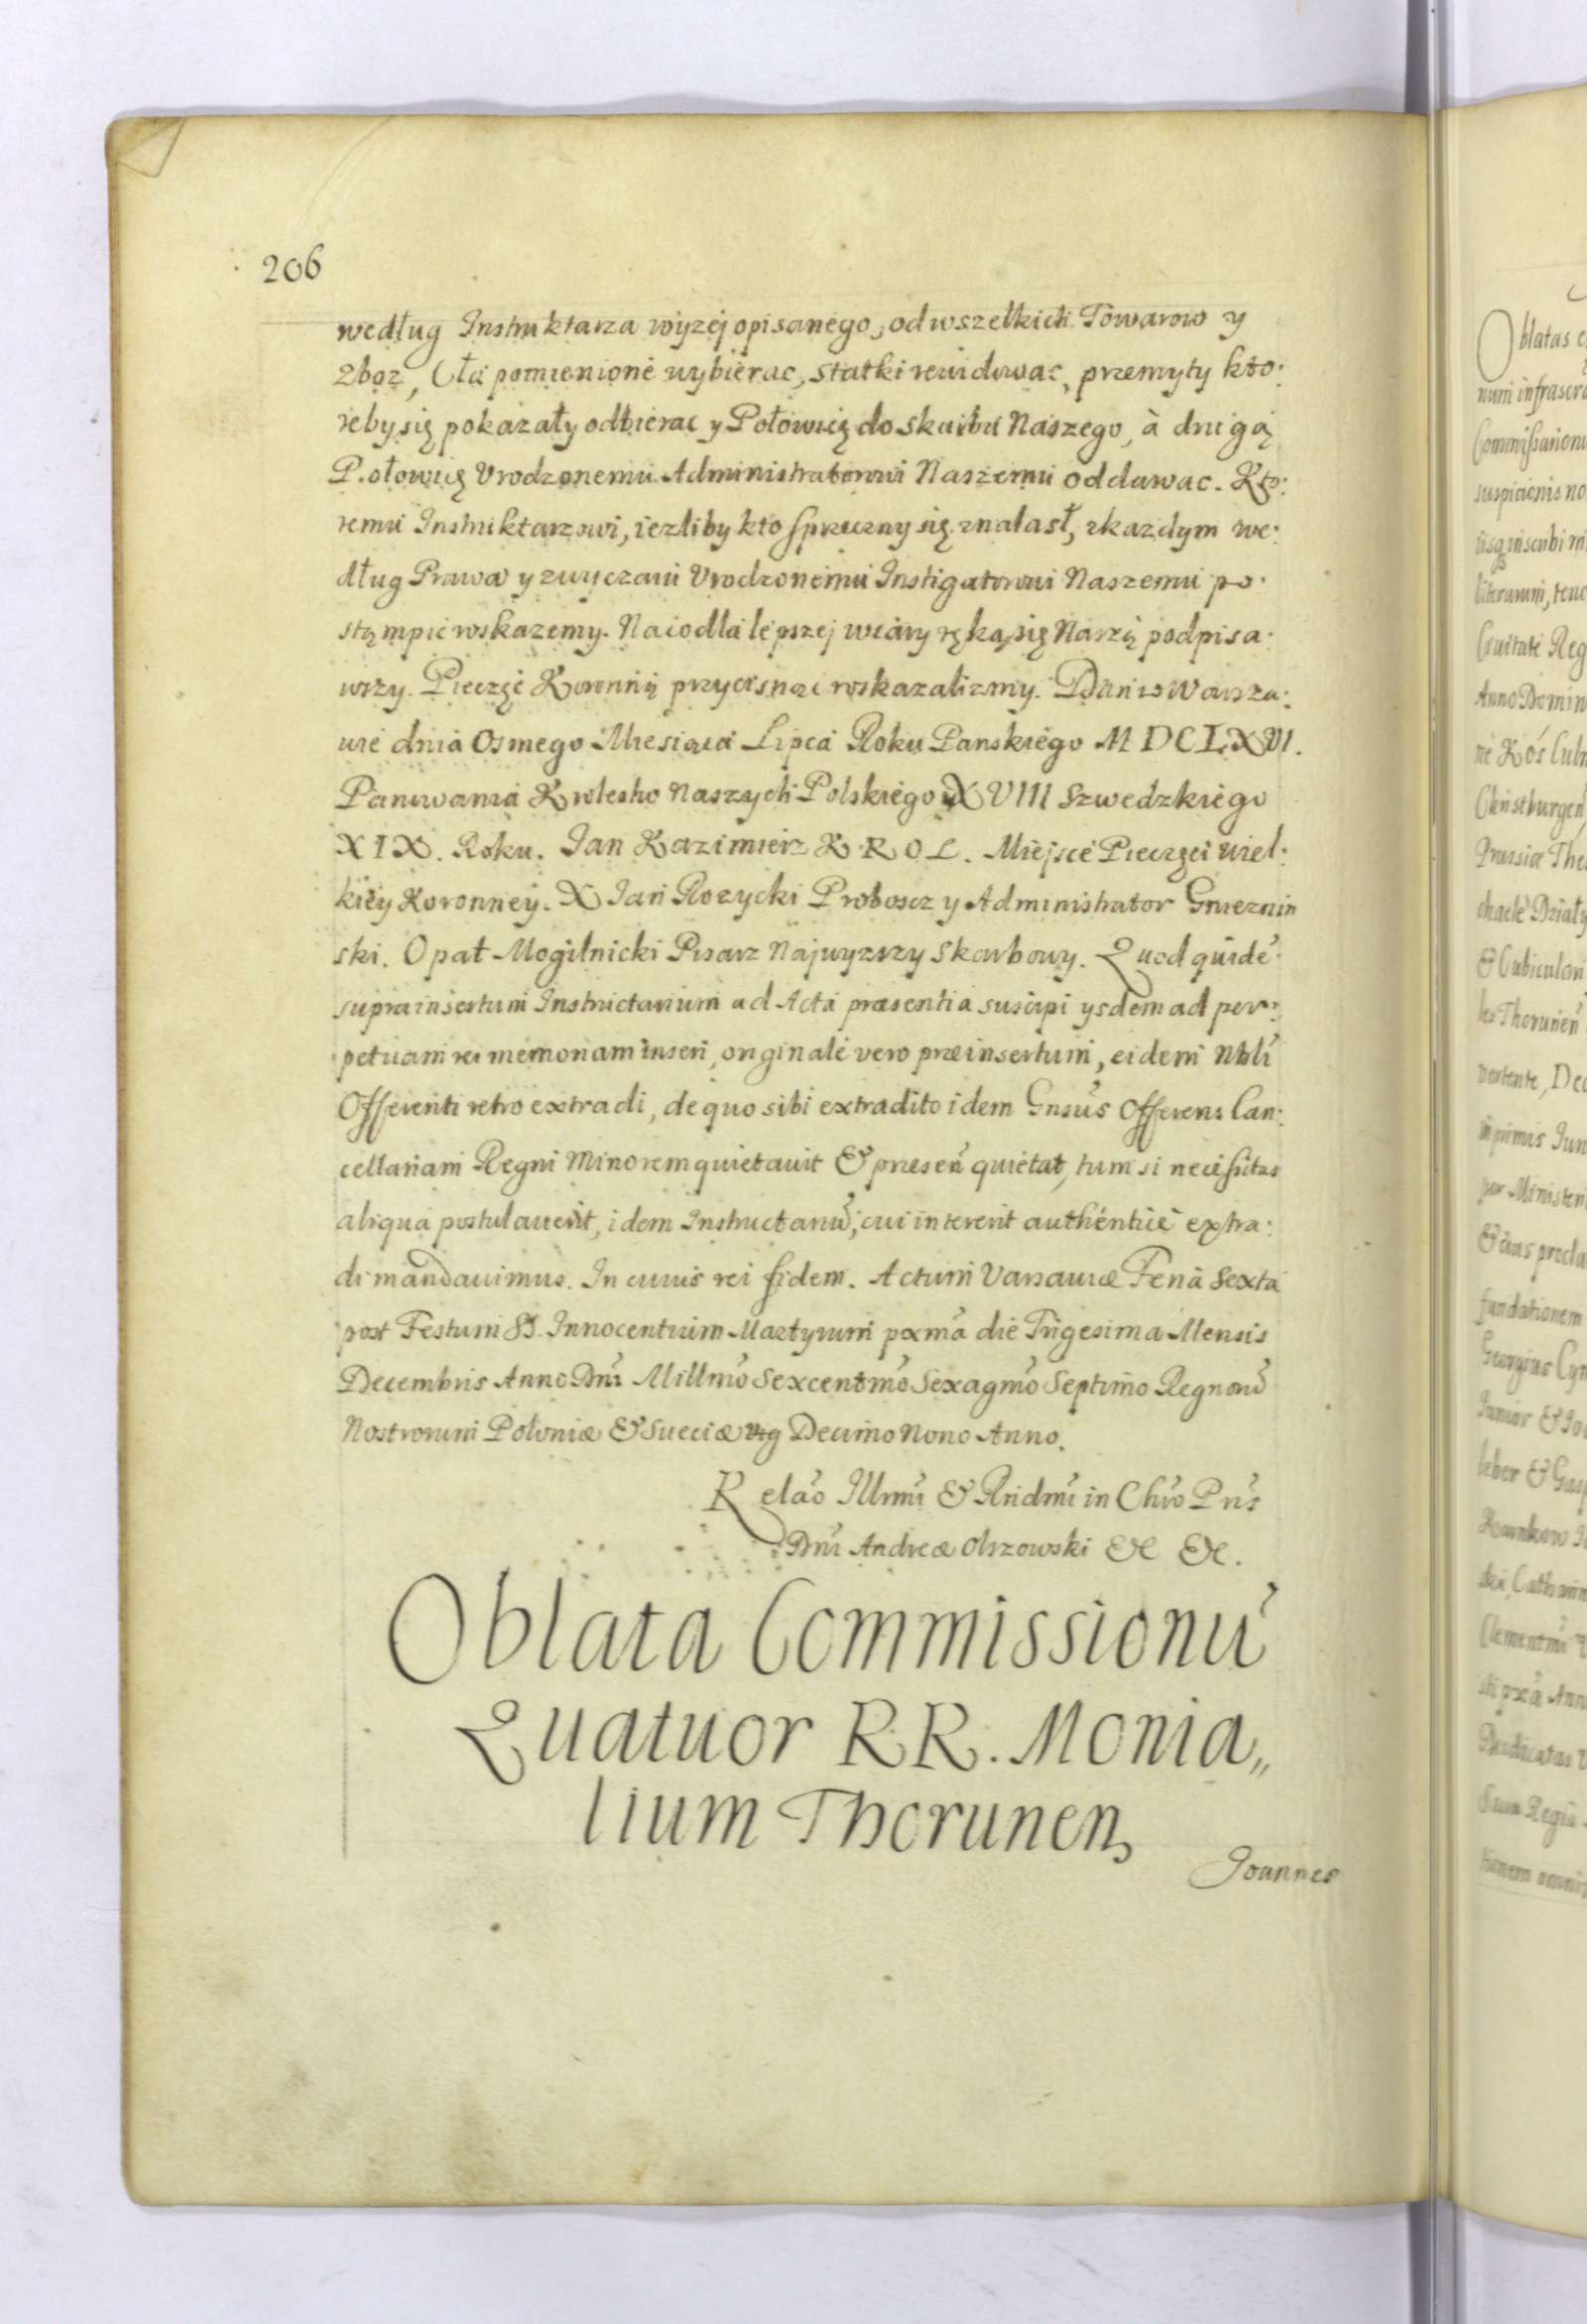 206
według Instruktarza wyżej opisanego, od wszelkich Towarow y
Zboz, Cła pomienione wybierac, statki rewidowac, przemyty kto:
reby się pokazały odbierac y Połowicę do skarbu Naszego, à drugą
Połowicę Vrodzonemu Administratorowi Naszemu oddawac. Kto:
remu Instruktarzowi, iezliby kto sprzeczny się znalasł, z kazdym we:
dług Prawa y zwyczaiu Vrodzonemu Instigatorowi Naszemu po:
stąmpic roskazemy. Na co dla lepszej wiary ręką się Naszą podpisa:
wszy. Pieczęć Koronną przycisnąc roskazalismy. Dan w Warsza:
wie dnia Osmego Miesiąca Lipca Roku Panskiego MDCLXVI.
Panowania Krolestw Naszych Polskiego XVIII Szwedzkiego
XIX. Roku. Jan Kazimierz KROL. Miejsce Pieczęci wiel:
kiey Koronney. X Jan Rozycki Proboscz y Administrator Gnieznin
ski. Opat Mogilnicki Pisarz Najwyzszy Skarbowy. Quod quidē
supra insertum Instructarium ad Acta præsentia suscipi ysdem ad per:
petuam rei memoriam inseri, originale vero præinsertum, eidem Nbli
Offerenti retro extradi, de quo sibi extradito idem Gnsus Offerens Can:
cellariam Regni Minorem quietavit & præsen quietat, tum si necessitas
aliqua postulaverit, idem Instructariū, cui intererit authenticè extra:
di mandavimus. In cuius rei fidem. Actum Varsaviæ Feria Sexta
post Festum SS. Innocentium Martyrum pxmā die Trigesima Mensis
Decembris Anno Dni Millmō Sexcentmō Sexagmō Septimo Regnorū
Nostrorum Poloniæ & Sueciæ Decimo Nono Anno.
Relaō Illrmi & Rndmi in Chrō Pris
Dni Andreæ Olszowski &c &c.
Oblata Commissionū
Quatuor RR. Monia,,
lium Thorunen,
Joannes
Oblatas
num infrascr
Commissarioru
suspicionis no
literarum, teno
Civitate Reg
Anno Domin
Kos Culm
Prussiæ
Thorunen
imprimis Jun
per Ministeri
fundationem
Georgius Cy
Junior & Jo